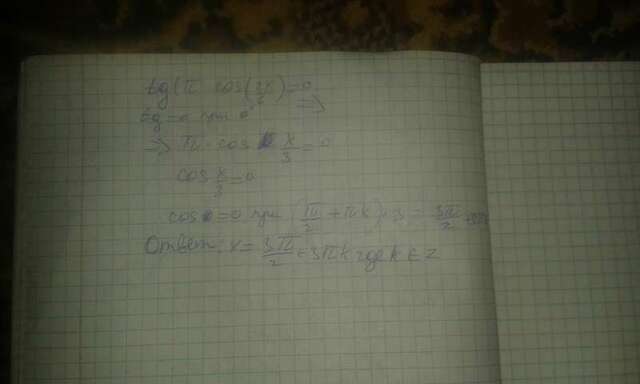 tg(π cos(
tg=0 при 0
=> π·cos x/3=0
cos x/3=0
cos =0 при (π/2+πk)·3=3π/2
Ответ: x=3π/2+3πk где k∈Z